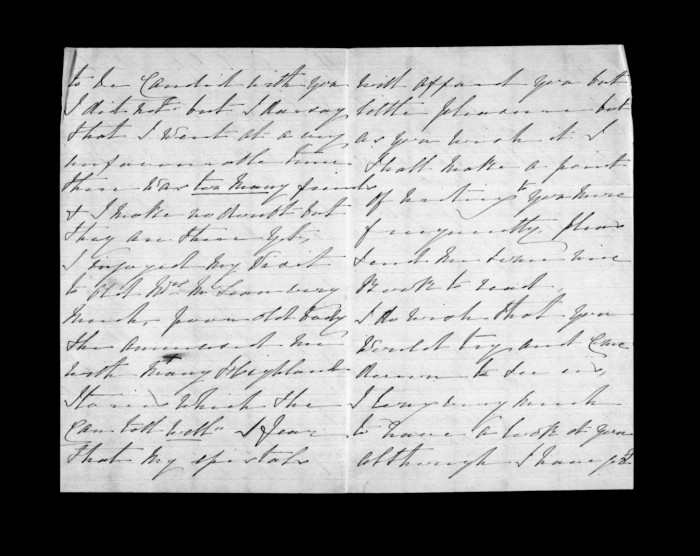 to be Candid with you
I did not but I daresay
that I went at a very
unfavourable time
there was too many friends
& I make no doubt but
they are there yet,
I enjoyed my visit
to Old Mrs McLean very
much, poor old body
she amused me
with many Highland
Stories which she
can tell well. I fear
that my epistals
will afford you but
little pleasure but
as you wish it I
shall make a point
of writing to you more
frequently, Please
send me some nice
Book to read,
I do wish that you
would try and Come
down to see us,
I long very much
to have a look at you
although I have